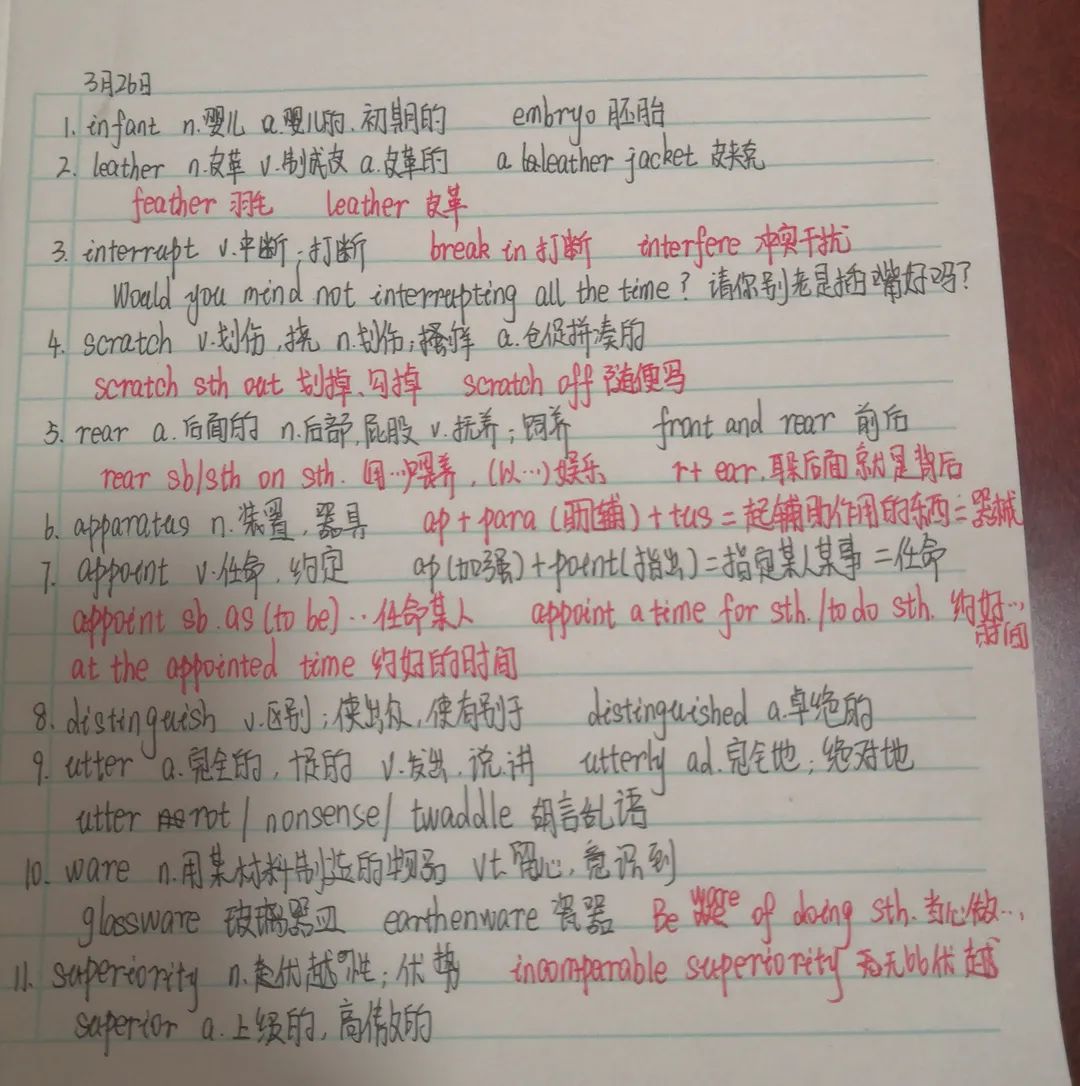 3月26日
1. infant n.婴儿 a.婴儿的、初期的 embryo 胚胎
2. leather n.皮革 v.制成皮 a.皮革的 a leather jacket 皮夹克
feather 羽毛 leather 皮革
3. interrupt v.中断；打断 break in 打断 interfere 冲突干扰
Would you mind not interrupting all the time? 请你别老是插嘴好吗?
4. scratch v.划伤,挠 n.划伤;搔痒 a.仓促拼凑的
scratch sth out 划掉、勾掉 scratch off 随便写
5. rear a.后面的 n.后部,屁股 v.抚养;饲养 front and rear 前后
rear sb/sth on sth. 用…喂养,(以…)娱乐 r+ear.耳朵后面就是背后
6. apparatus n.装置,器具 ap+para(辅)+tus=起辅助作用的东西=器械
7. appoint v.任命,约定 ap(加强)+point(指出)=指定某人某事=任命
appoint sb.as(to be)…任命某人 appoint a time for sth./to do sth. 约好…时间
at the appointed time 约好的时间
8. distinguish v.区别;使出众,使有别于 distinguished a.卓绝的
9. utter a.完全的, v.发出.说.讲 utterly ad.完全地;绝对地
utter rot/nonsense/twaddle 胡言乱语
10. ware n.用某材料制造的物品 vt.留心,意识到
glassware 玻璃器皿 earthenware 瓷器 Be ware of doing sth.当心做…
11. superiority n.优越性;优势 incomparable superiority 无比优越
superior a.上级的,高傲的